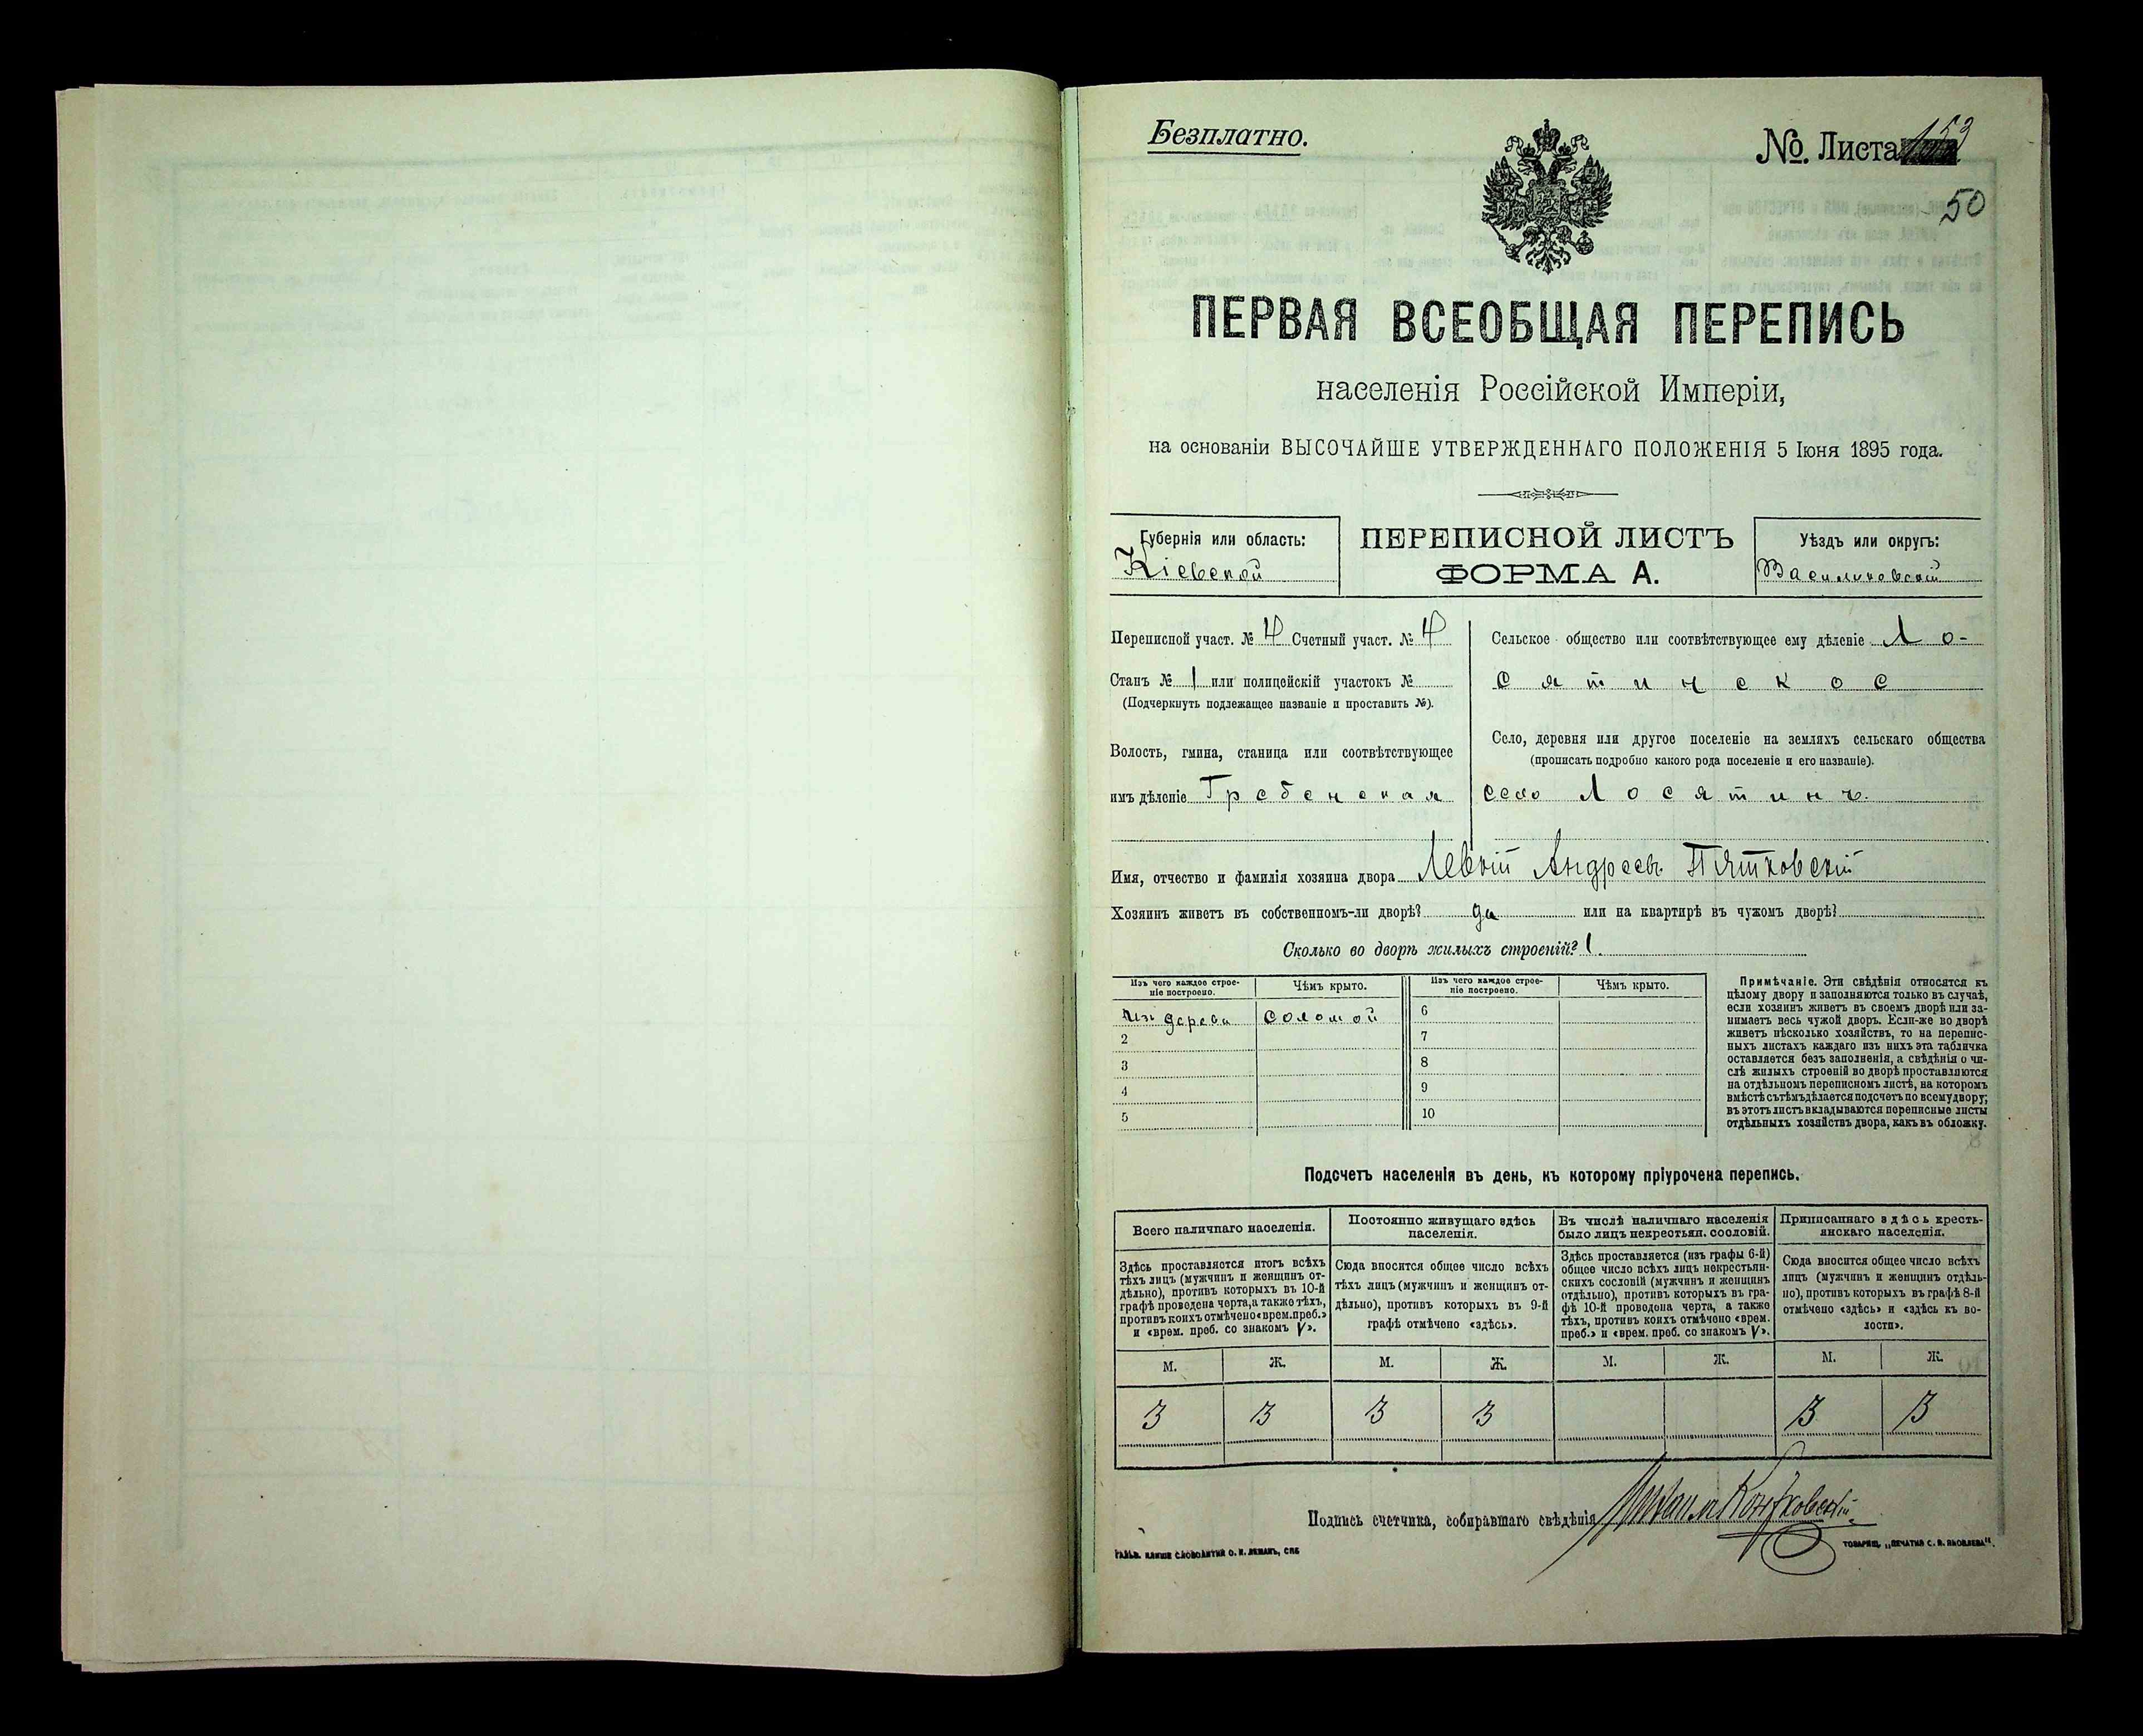 Безплатно.
№. Листа 153
50
ПЕРВАЯ ВСЕОБЩАЯ ПЕРЕПИСЬ
населенія Россійской Имперіи,
на основаніи ВЫСОЧАЙШЕ УТВЕРЖДЕННАГО ПОЛОЖЕНІЯ 5 Іюня 1895 года.
Губернія или область:
Кіевской
ПЕРЕПИСНОЙ ЛИСТЪ
ФОРМА А.
Уѣздъ или округъ:
Васильковскій
Переписной участ. № 4 Счетный участ. № 4
Станъ № 1 или полицейскій участокъ №
(Подчеркнуть подлежащее названіе и проставить №).
Волость, гмина, станица или соотвѣтствующее
имъ дѣленіе Гребенская
Сельское общество или соотвѣтствующее ему дѣленіе Ло-
сятинское
Село, деревня или другое поселеніе на земляхъ сельскаго общества
(прописать подробно какого рода поселеніе и его названіе).
село Лосятинъ.
Имя, отчество и фамилія хозяина двора Левкій Андреевъ Пятковскій
Хозяинъ живетъ въ собственномъ-ли дворѣ? да или на квартирѣ въ чужомъ дворѣ?
Сколько во дворѣ жилыхъ строеній? 1.
Изъ чего каждое строе-
ніе построено.
Чѣмъ крыто.
Изъ чего каждое строе-
ніе построено.
Чѣмъ крыто.
Из дерева соломой 6
2 7
3 8
4 9
5 10
Примѣчаніе. Эти свѣдѣнія относятся къ
цѣлому двору и заполняются только въ случаѣ,
если хозяинъ живетъ въ своемъ дворѣ или за-
нимаетъ весь чужой дворъ. Если-же во дворѣ
живетъ нѣсколько хозяйствъ, то на перепис-
ныхъ листахъ каждаго изъ нихъ эта табличка
оставляется безъ заполненія, а свѣдѣнія о чи-
слѣ жилыхъ строеній во дворѣ проставляются
на отдѣльномъ переписномъ листѣ, на которомъ
вмѣстѣ съ тѣмъ дѣлается подсчетъ по всему двору;
въ этотъ листъ вкладываются переписные листы
отдѣльныхъ хозяйствъ двора, какъ въ обложку.
Подсчетъ населенія въ день, къ которому пріурочена перепись.
Всего наличнаго населенія.
Здѣсь проставляется итогъ всѣхъ
тѣхъ лицъ (мужчинъ и женщинъ от-
дѣльно), противъ которыхъ въ 10-й
графѣ проведена черта, а также тѣхъ,
противъ коихъ отмѣчено «врем. преб.»
и «врем. преб. со знакомъ V».
Постоянно живущаго здѣсь
населенія.
Сюда вносится общее число всѣхъ
тѣхъ лицъ (мужчинъ и женщинъ от-
дѣльно), противъ которыхъ въ 9-й
графѣ отмѣчено «здѣсь».
Въ числѣ наличнаго населенія
было лицъ некрестьян. сословій.
Здѣсь проставляется (изъ графы 6-й)
общее число всѣхъ лицъ некрестьян-
скихъ сословій (мужчинъ и женщинъ
отдѣльно), противъ которыхъ въ гра-
фѣ 10-й проведена черта, а также
тѣхъ, противъ коихъ отмѣчено «врем.
преб.» и «врем. преб. со знакомъ V».
Приписаннаго здѣсь кресть-
янскаго населенія.
Сюда вносится общее число всѣхъ
лицъ (мужчинъ и женщинъ отдѣль-
но), противъ которыхъ въ графѣ 8-й
отмѣчено «здѣсь» и «здѣсь къ во-
лости».
М. Ж. М. Ж. М. Ж. М. Ж.
3 3 3 3 3 3
Подпись счетчика, собиравшаго свѣдѣнія Михаилъ
ТОВАРИЩ. „ПЕЧАТНЯ С. П. ЯКОВЛЕВА“.